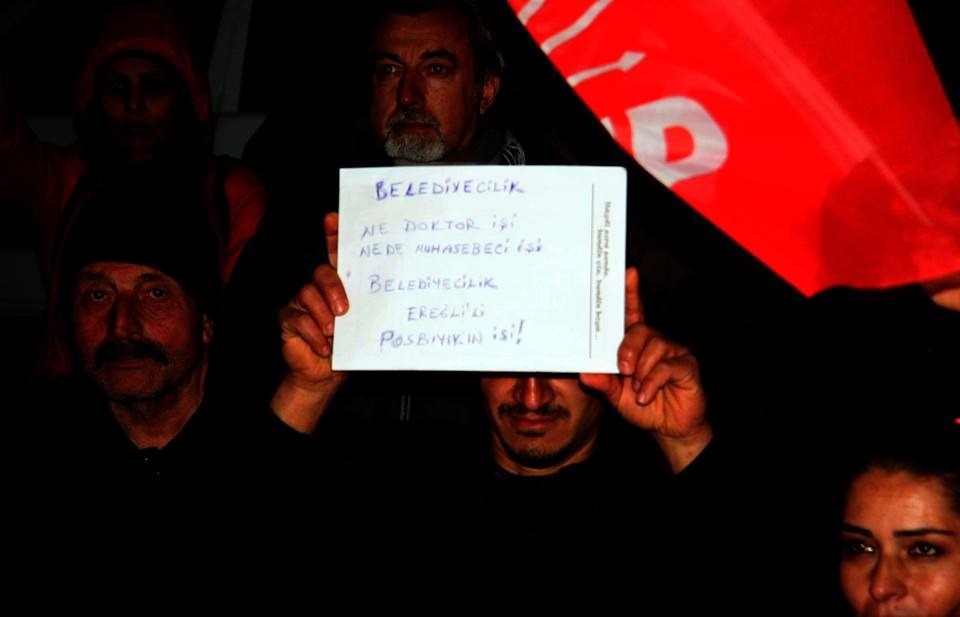 BELEDİYECİLİK
NE DOKTOR İŞİ
NEDE MUHASEBECİ İŞİ
BELEDİYECİLİK
EREĞLİ'Lİ
POSBIYIK'IN İŞİ!
P